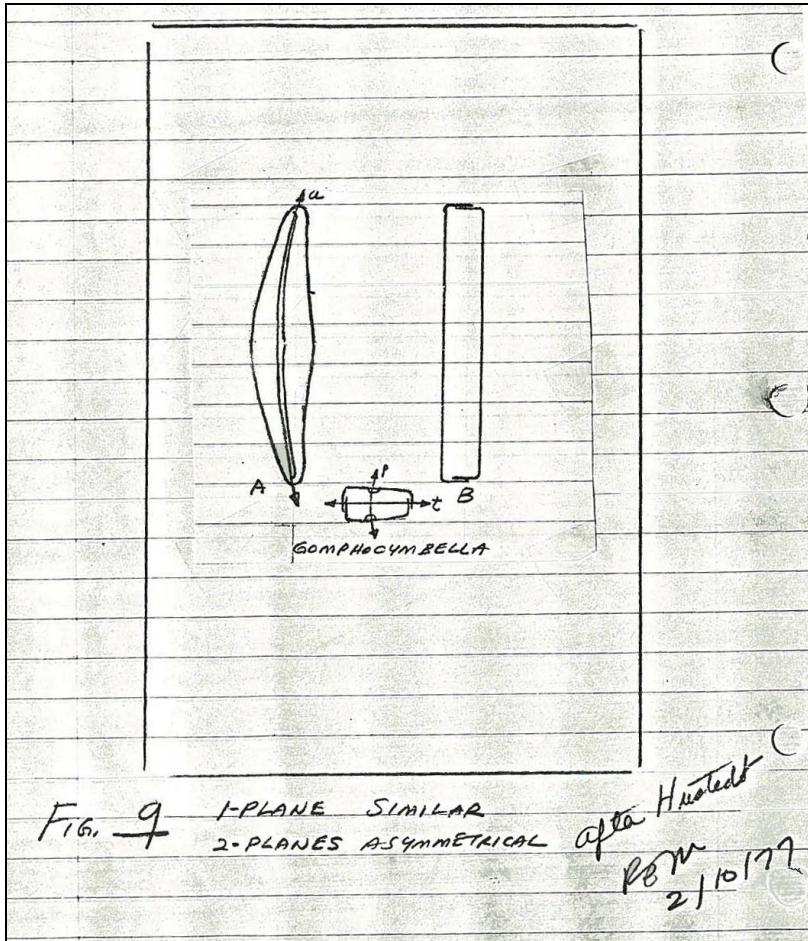 a
A
P
t
B
GOMPHOCYMBELLA
FIG. 9
1-PLANE SIMILAR
2-PLANES ASYMMETRICAL
after Hustedt
2/10/77